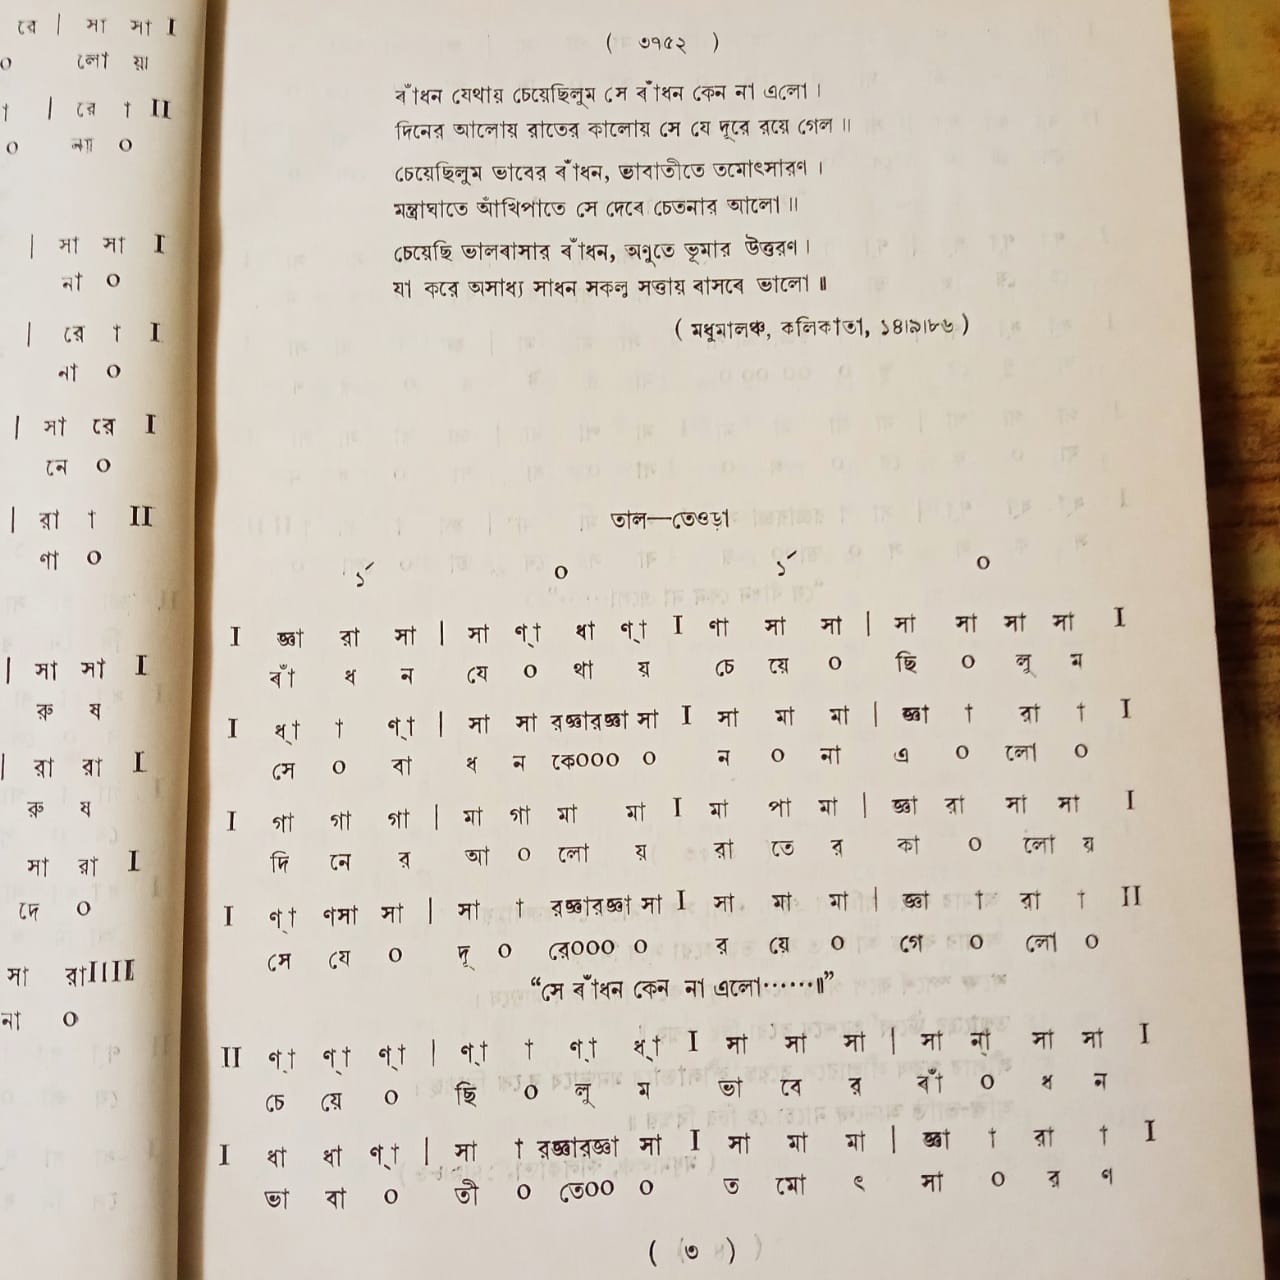 রে | সা সা I
০ লো য়া
া | রে া II
০ না ০
| সা সা I
না ০
| রে া I
না ০
| সা রে I
নে ০
| রা া II
ণা ০
| সা সা I
রু ষ
| রা রা I
রু ষ
সা রা I
দে ০
সা রাIIII
না ০
( ৩৭৫২ )
বাঁধন যেথায় চেয়েছিলুম সে বাঁধন কেন না এলো ।
দিনের আলোয় রাতের কালোয় সে যে দূরে রয়ে গেল ॥
চেয়েছিলুম ভাবের বাঁধন, ভাবাতীতে তমোৎসারণ ।
মন্ত্রাঘাতে আঁখিপাতে সে দেবে চেতনার আলো ॥
চেয়েছি ভালবাসার বাঁধন, অণুতে ভূমার উত্তরণ ।
যা করে অসাধ্য সাধন সকল সত্তায় বাসবে ভালো ॥
( মধুমালঞ্চ, কলিকাতা, ১৪।৯।৮৬ )
তাল—তেওড়া
১´ ০ ১´ ০
I জ্ঞা রা সা | সা ণ্া ধা ণ্া I ণা সা সা | সা সা সা সা I
বাঁ ধ ন যে ০ থা য় চে য়ে ০ ছি ০ লু ম
I ধ্া া ণ্া | সা সা রজ্ঞারজ্ঞা সা I সা মা মা | জ্ঞা া রা া I
সে ০ বা ধ ন কে০০০ ০ ন ০ না এ ০ লো ০
I গা গা গা | মা গা মা মা I মা পা মা | জ্ঞা রা সা সা I
দি নে র আ ০ লো য় রা তে র কা ০ লো য়
I ণ্া ণসা সা | সা া রজ্ঞারজ্ঞা সা I সা মা মা | জ্ঞা া রা া II
সে যে ০ দূ ০ রে০০০ ০ র য়ে ০ গে ০ লো ০
“সে বাঁধন কেন না এলো······॥”
II ণ্া ণ্া ণ্া | ণ্া া ণ্া ধ্া I সা সা সা | সা ন্া সা সা I
চে য়ে ০ ছি ০ লু ম ভা বে র বাঁ ০ ধ ন
I ধা ধা ণ্া | সা া রজ্ঞারজ্ঞা সা I সা মা মা | জ্ঞা া রা া I
ভা বা ০ তী ০ তে০০ ০ ত মো ৎ সা ০ র ণ
( ৩ )